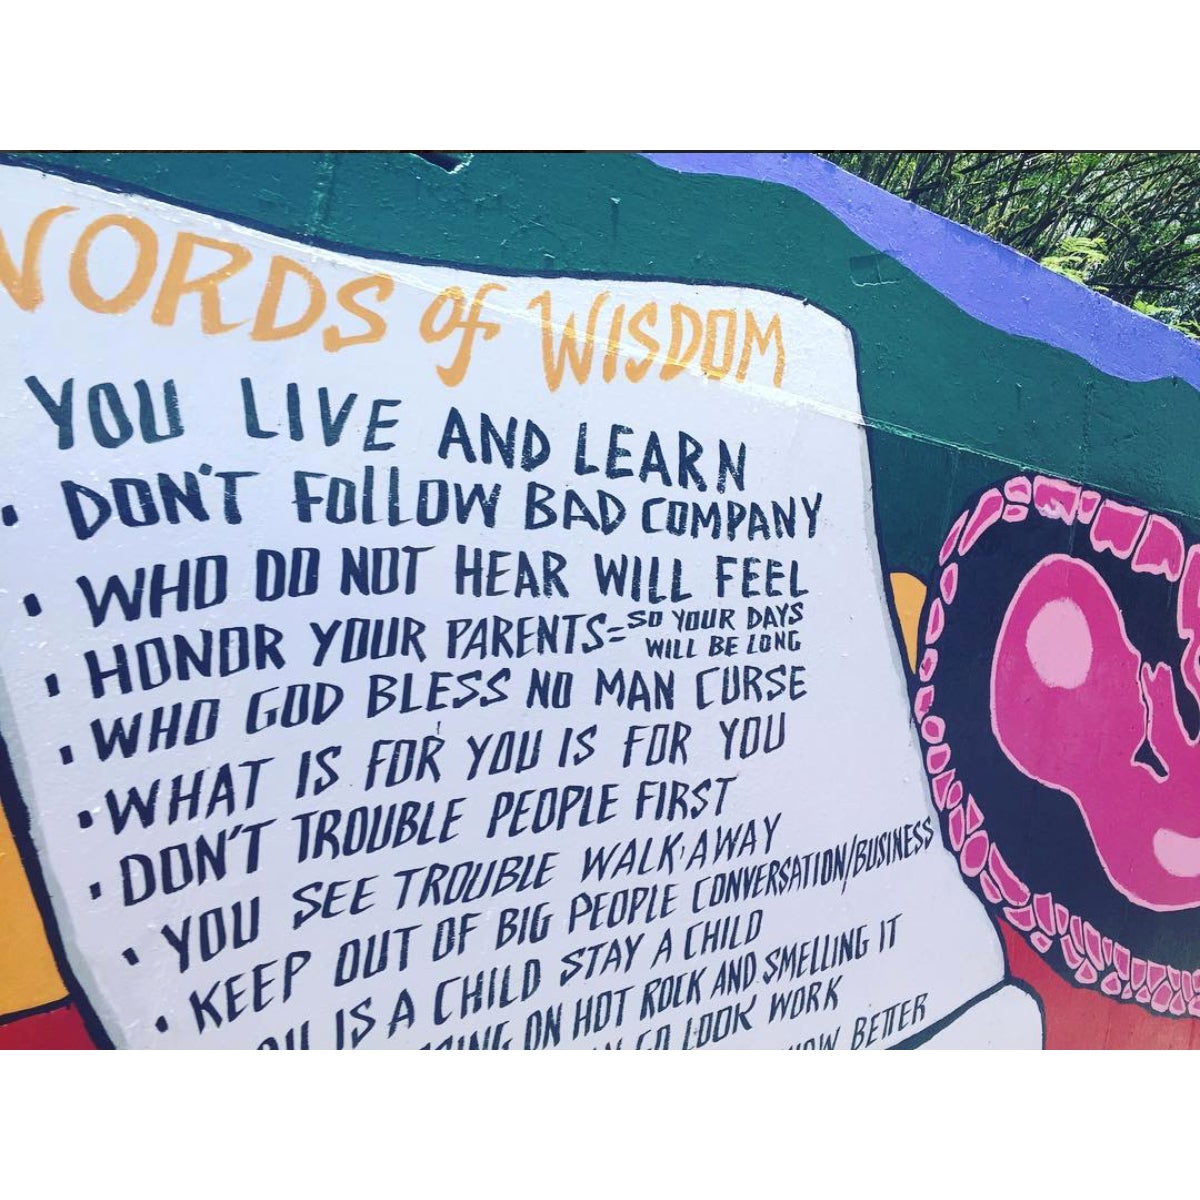 WORDS OF WISDOM
YOU LIVE AND LEARN
• DON'T FOLLOW BAD COMPANY
• WHO DO NOT HEAR WILL FEEL
• HONOR YOUR PARENTS=SO YOUR DAYS WILL BE LONG
• WHO GOD BLESS NO MAN CURSE
• WHAT IS FOR YOU IS FOR YOU
• DON'T TROUBLE PEOPLE FIRST
• YOU SEE TROUBLE WALK AWAY
• KEEP OUT OF BIG PEOPLE CONVERSATION/BUSINESS
IS A CHILD STAY A CHILD
ON HOT ROCK AND SMELLING IT
GO LOOK WORK
BETTER